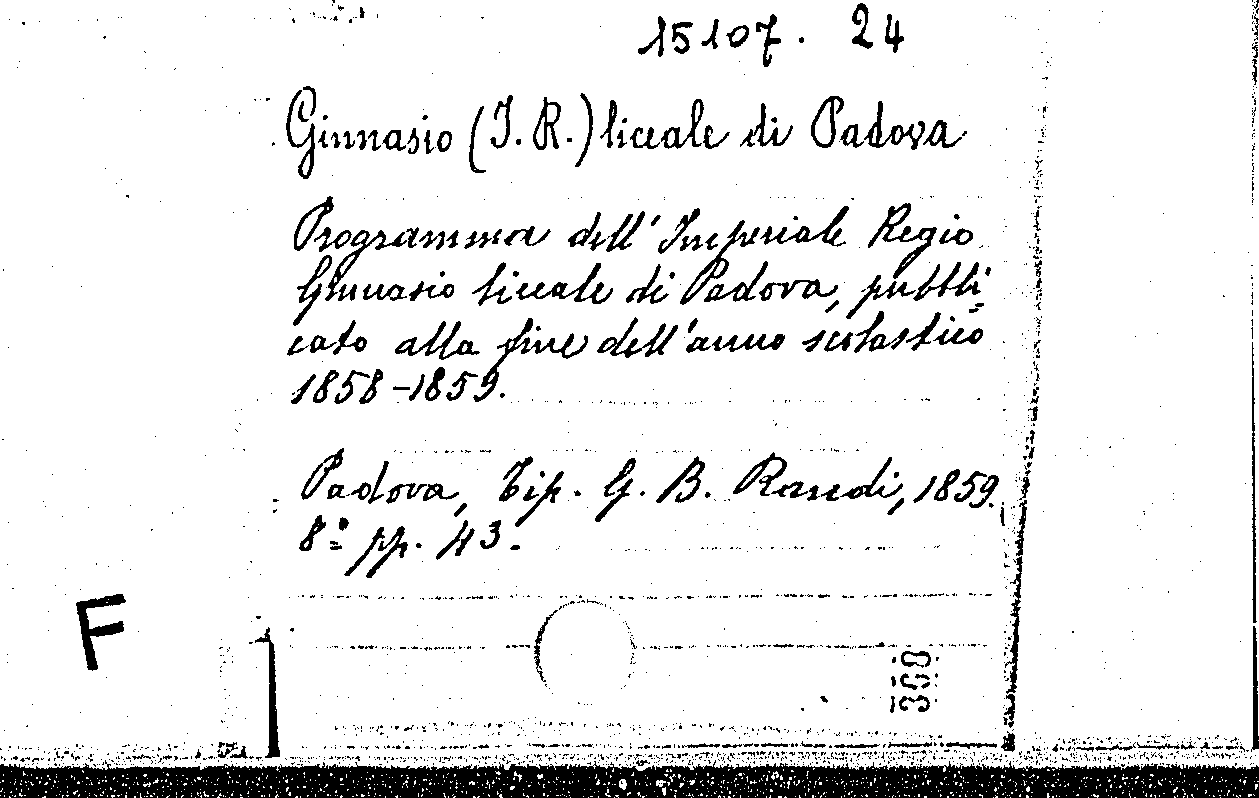 15107. 24
Ginnasio (I. R.) liceale di Padova
Programma dell'Imperiale Regio
Ginnasio liceale di Padova, pubbli=
cato alla fine dell'anno scolastico
1858-1859.
Padova, Tip. G. B. Randi, 1859.
8º pp. 43.
F
368